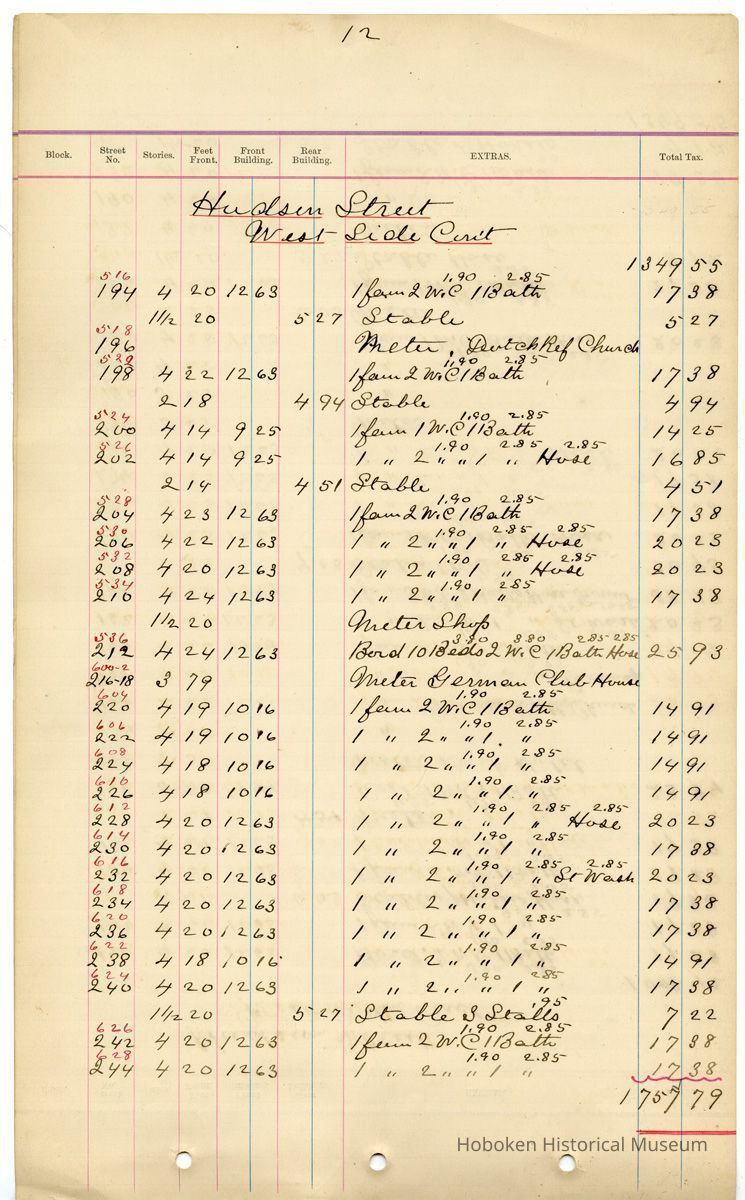 12
Block. Street No. Stories. Feet Front. Front Building. Rear Building. EXTRAS. Total Tax.
Hudson Street
West Side Con't
1349 55
516 1.90 2.85
194 4 20 12 63 1 fam 2 W.C 1 Bath 17 38
1 1/2 20 5 27 Stable 5 27
518
196 Meter, Dutch Ref Church
522 1.90 2.85
198 4 22 12 63 1 fam 2 W.C 1 Bath 17 38
2 18 4 94 Stable 4 94
524 1.90 2.85
200 4 14 9 25 1 fam 1 W.C 1 Bath 14 25
526 1.90 2.85 2.85
202 4 14 9 25 1 " 2 " " 1 " Hose 16 85
2 14 4 51 Stable 4 51
528 1.90 2.85
204 4 23 12 63 1 fam 2 W.C 1 Bath 17 38
530 1.90 2.85 2.85
206 4 22 12 63 1 " 2 " " 1 " Hose 20 23
532 1.90 2.85 2.85
208 4 20 12 63 1 " 2 " " 1 " Hose 20 23
534 1.90 2.85
210 4 24 12 63 1 " 2 " " 1 " 17 38
1 1/2 20 Meter Shop
536 3.80 3.80 2.85 2.85
212 4 24 12 63 Bord 10 Beds 2 W.C 1 Bath Hose 25 93
600-2
216-18 3 79 Meter German Club House
604 1.90 2.85
220 4 19 10 16 1 fam 2 W.C 1 Bath 14 91
606 1.90 2.85
222 4 19 10 16 1 " 2 " " 1 " 14 91
608 1.90 2.85
224 4 18 10 16 1 " 2 " " 1 " 14 91
610 1.90 2.85
226 4 18 10 16 1 " 2 " " 1 " 14 91
612 1.90 2.85 2.85
228 4 20 12 63 1 " 2 " " 1 " Hose 20 23
614 1.90 2.85
230 4 20 12 63 1 " 2 " " 1 " 17 38
616 1.90 2.85 2.85
232 4 20 12 63 1 " 2 " " 1 " St Wash 20 23
618 1.90 2.85
234 4 20 12 63 1 " 2 " " 1 " 17 38
620 1.90 2.85
236 4 20 12 63 1 " 2 " " 1 " 17 38
622 1.90 2.85
238 4 18 10 16 1 " 2 " " 1 " 14 91
624 1.90 2.85
240 4 20 12 63 1 " 2 " " 1 " 17 38
.95
1 1/2 20 5 27 Stable 3 Stalls 7 22
626 1.90 2.85
242 4 20 12 63 1 fam 2 W.C 1 Bath 17 38
628 1.90 2.85
244 4 20 12 63 1 " 2 " " 1 " 17 38
1757 79
Hoboken Historical Museum